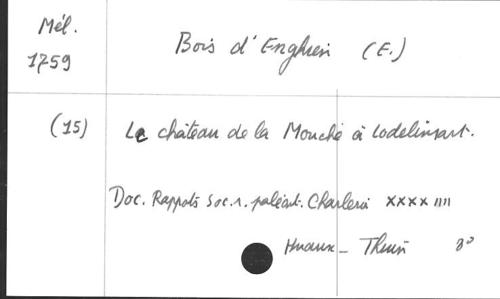 Mél.
1759
Bois d'Enghien (E.)
(15) Le château de la Mouche à Lodelinsart.
Doc. Rappots Soc. r. paléont. Charleroi xxxx
Thuin 8°